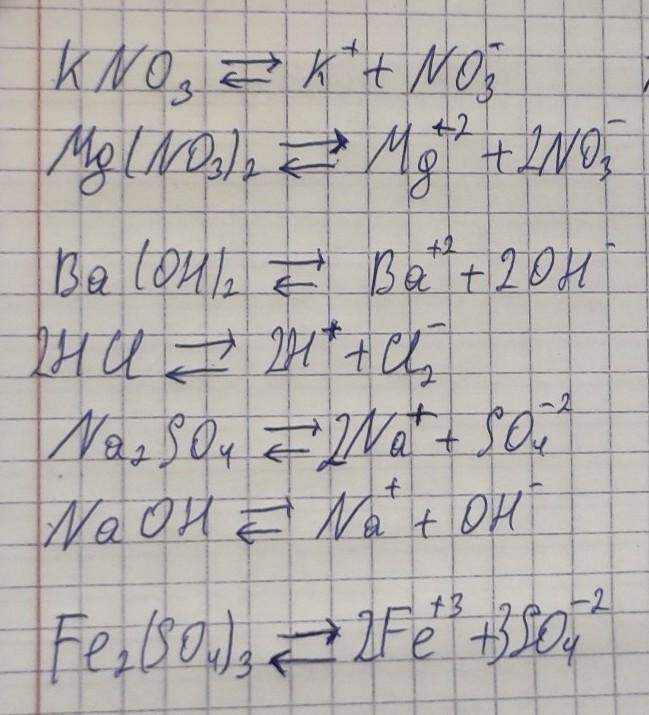 KNO₃ ⇄ K⁺ + NO₃⁻
Mg(NO₃)₂ ⇄ Mg⁺² + 2NO₃⁻
Ba(OH)₂ ⇄ Ba⁺² + 2OH⁻
2HCl ⇄ 2H⁺ + Cl₂⁻
Na₂SO₄ ⇄ 2Na⁺ + SO₄⁻²
NaOH ⇄ Na⁺ + OH⁻
Fe₂(SO₄)₃ ⇄ 2Fe⁺³ + 3SO₄⁻²